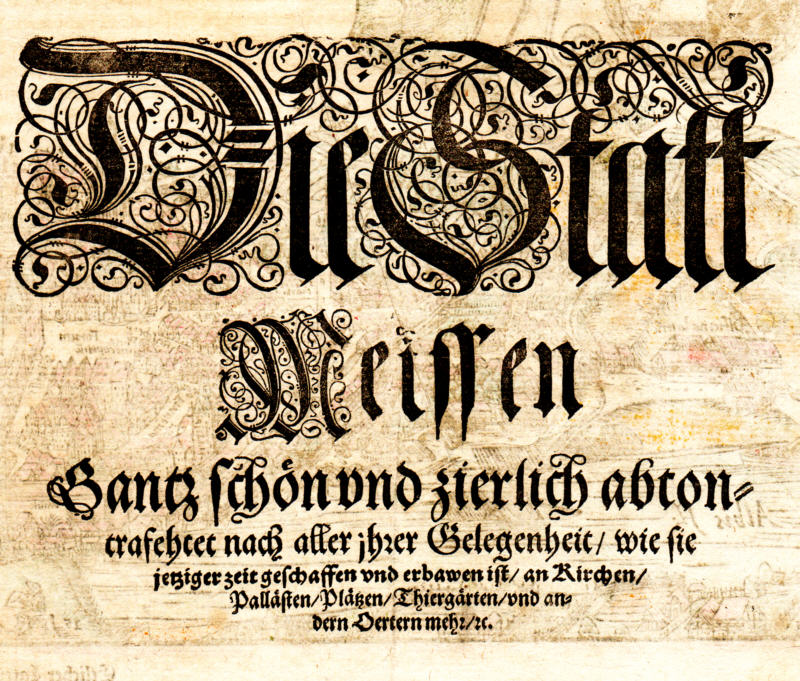 Die Statt
Meissen
Gantz schön vnd zierlich abcon⸗
trafehtet nach aller jhrer Gelegenheit/ wie sie
jetziger zeit geschaffen vnd erbawen ist/ an Kirchen/
Pallästen/Plätzen/Thiergärten/vnd an⸗
dern Oertern mehr/ꝛc.